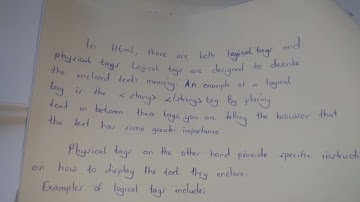 In Html, there are both logical tags and
physical tags Logical tags are designed to describe
the enclosed text's meaning. An example of a logical
tag is the < strong> </strong> tag By placing
text in between these tags, you are telling the browser that
the text has some greater importance.
Physical tags on the other hand provide specific instructi
on how to display the text they enclose.
Examples of logical tags include: